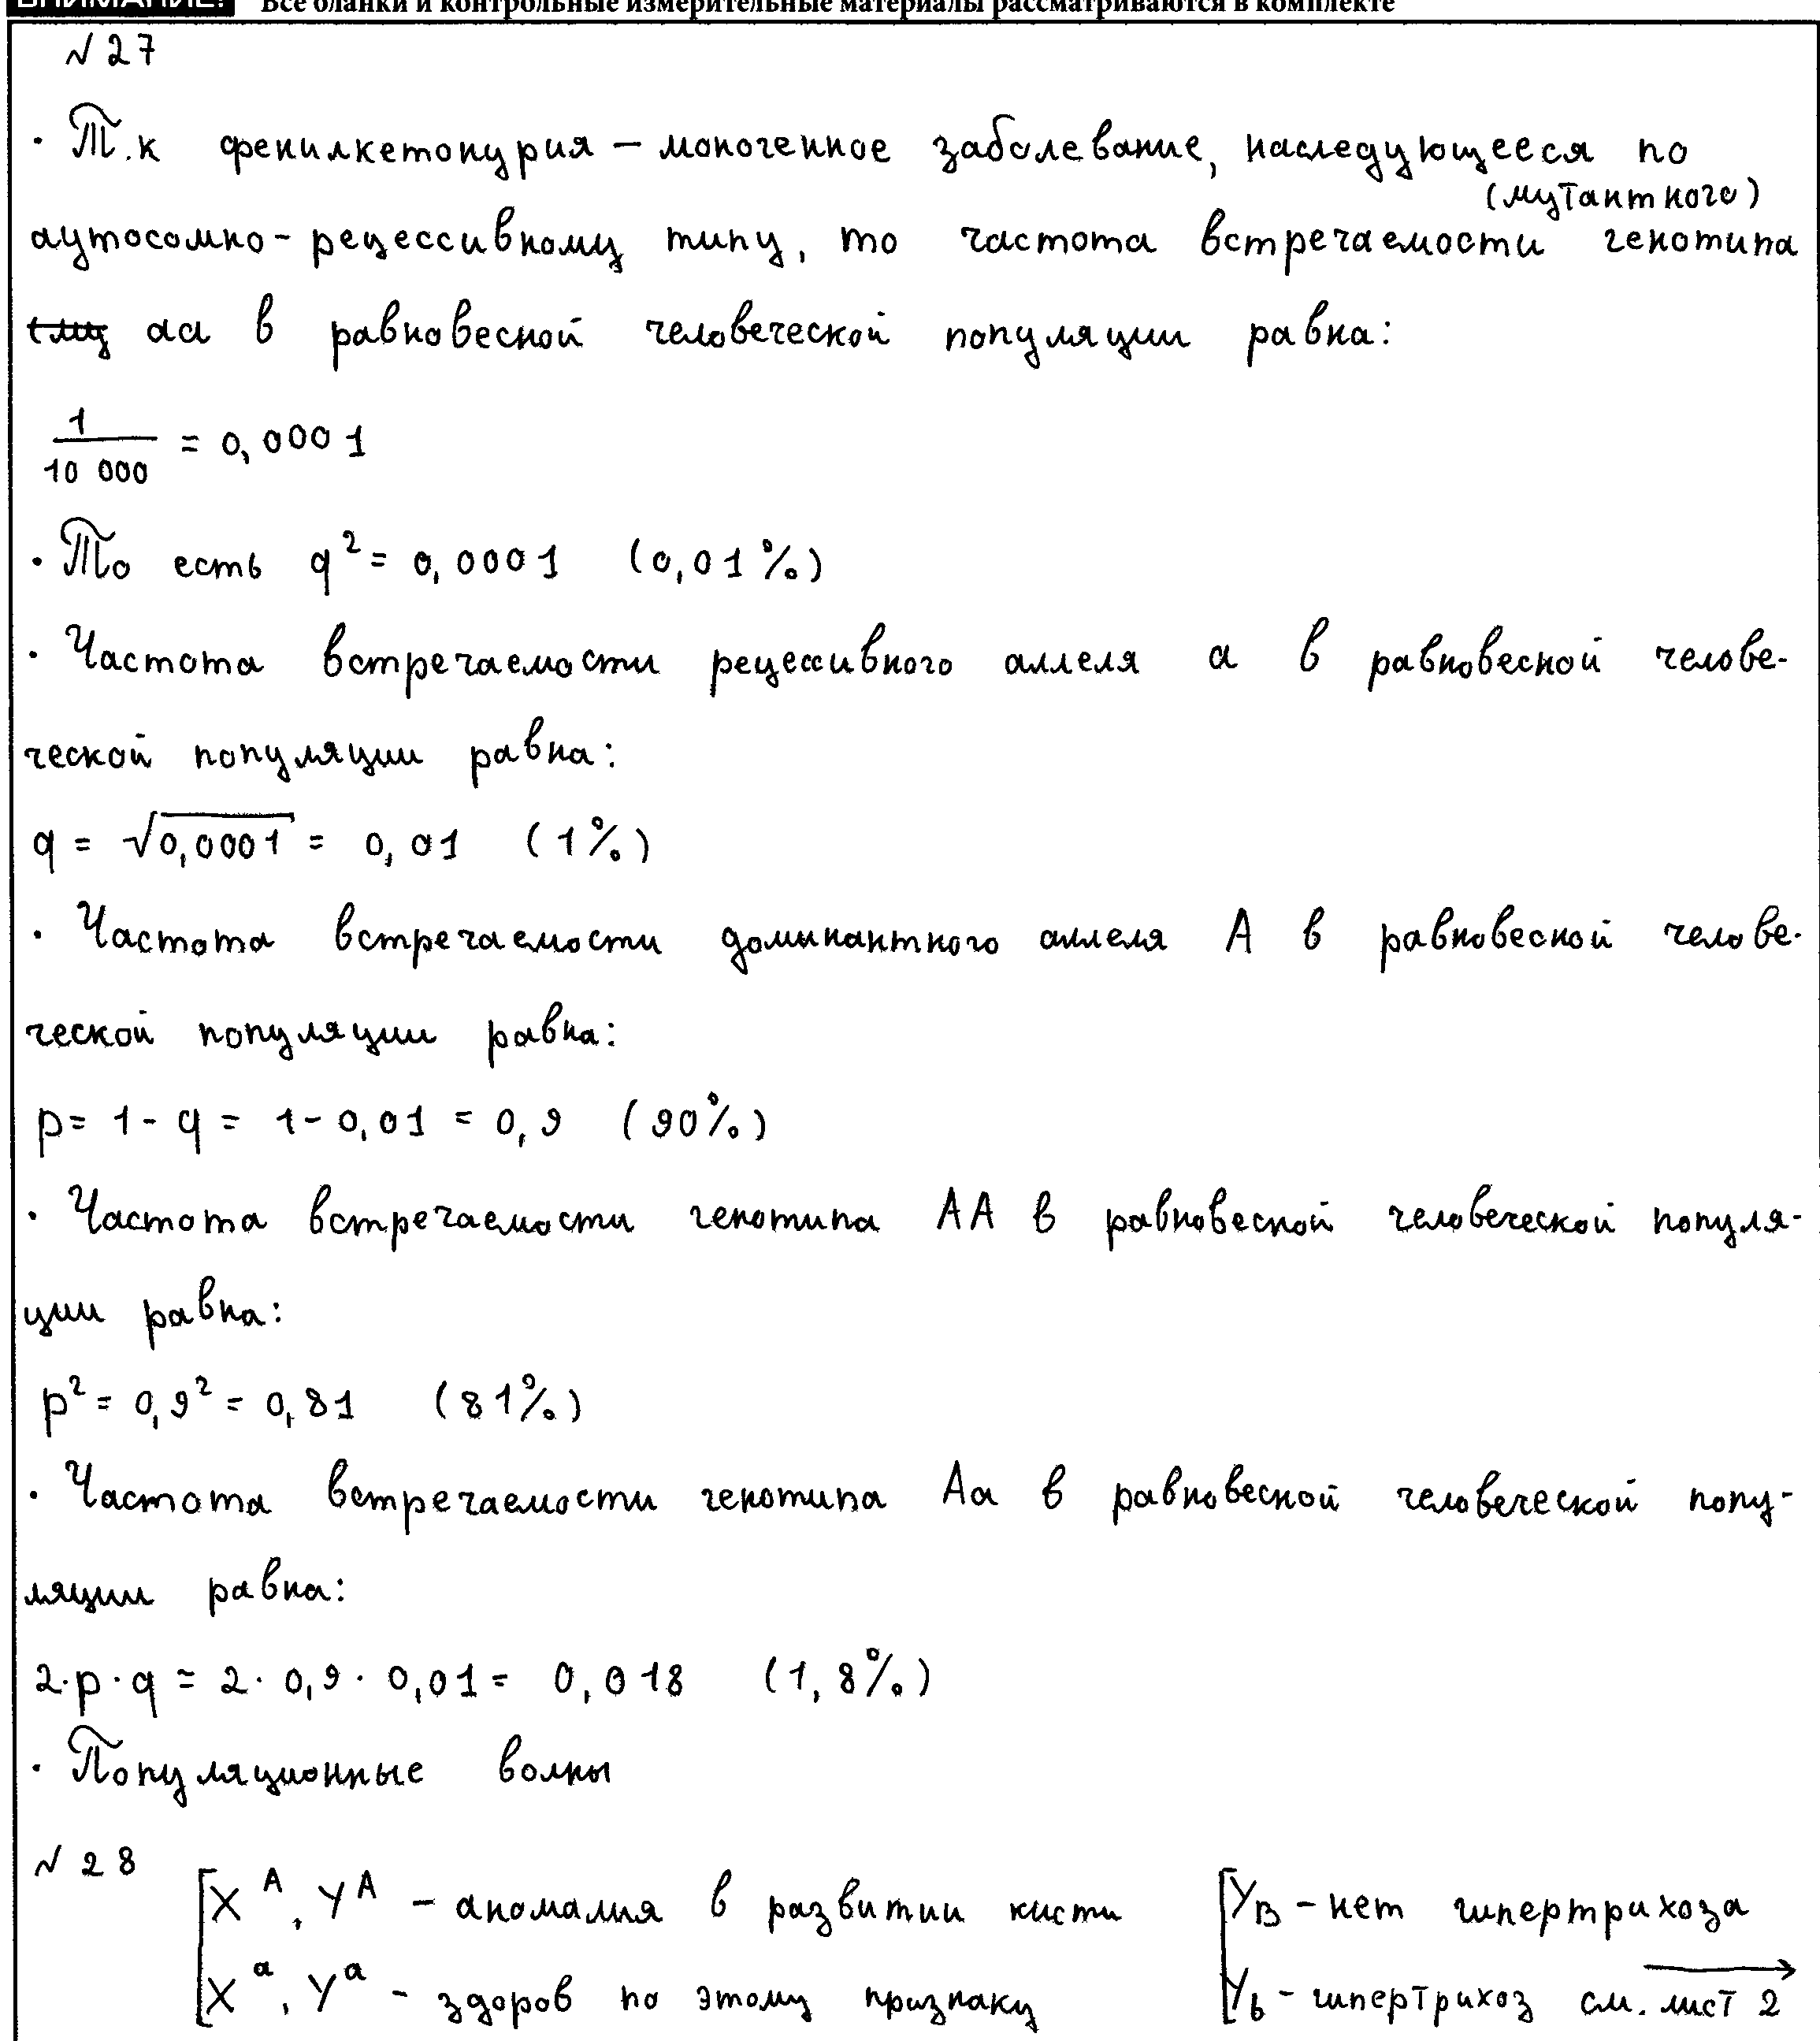 ВНИМАНИЕ! Все бланки и контрольные измерительные материалы рассматриваются в комплекте
№27
· Т.к фенилкетонурия – моногенное заболевание, наследующееся по
(мутантного)
аутосомно-рецессивному типу, то частота встречаемости генотипа
аа в равновесной человеческой популяции равна:
1/10 000 = 0,0001
· То есть q² = 0,0001 (0,01%)
· Частота встречаемости рецессивного аллеля а в равновесной челове-
ческой популяции равна:
q = √0,0001 = 0,01 (1%)
· Частота встречаемости доминантного аллеля А в равновесной челове-
ческой популяции равна:
p = 1 - q = 1 - 0,01 = 0,9 (90%)
· Частота встречаемости генотипа АА в равновесной человеческой популя-
ции равна:
p² = 0,9² = 0,81 (81%)
· Частота встречаемости генотипа Аа в равновесной человеческой попу-
ляции равна:
2·p·q = 2·0,9·0,01 = 0,018 (1,8%)
· Популяционные волны
№28
X^A, Y^A – аномалия в развитии кисти Y_B – нет гипертрихоза
X^a, Y^a – здоров по этому признаку Y_b – гипертрихоз см. лист 2